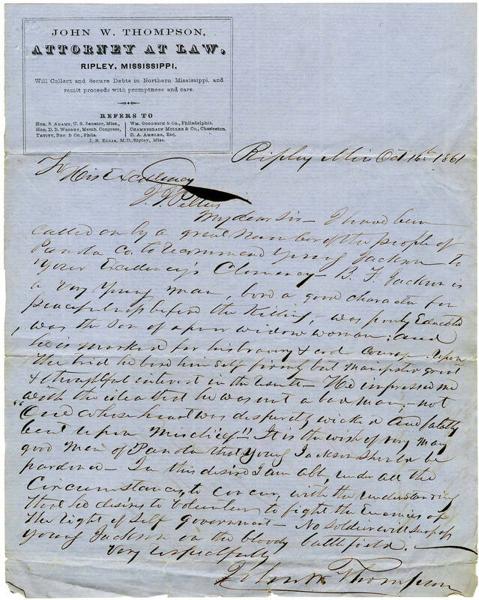 JOHN W. THOMPSON,
ATTORNEY AT LAW,
RIPLEY, MISSISSIPPI,
Will Collect and Secure Debts in Northern Mississippi, and
remit proceeds with promptness and care.
REFERS TO
Hon. S. Adams, U. S. Senator, Miss.
Hon. D. B. Wright, Memb. Congress,
& Co., Phila.
Wm. Goodrich & Co., Philadelphia.
Chamberlain Miller & Co., Charleston.
D. A. Ambler, Esq.
J. R. Ellis, M.D., Ripley, Miss.
Ripley Miss Oct 16th 1861
To His Excellency
J. J. Pettus
My dear Sir - I have been
called on by a great number of the people of
Panola Co. to recommend young Jackson to
Your Excellency's Clemency - B. F. Jackson is
a very young man, bore a good character for
peacefulness before the killing, was poorly educated
was the son of a poor widow woman: and
he is marked for his bravery & cool courage. Upon
the trial he bore himself firmly but manifested great
& thoughtful interest in the result - He impressed me
with the idea that he was not a bad man, - not
"One whose heart was desperately wicked and fatally
bent upon mischief"! It is the wish of very many
good men of Panola that young Jackson should be
pardoned - In this desire I am able, under all the
Circumstances, to concur, with the understanding
that he desires to volunteer to fight the enemies of
the right of self government - No soldier will surpass
young Jackson on the bloody battlefield. -
Very respectfully
John W. Thompson